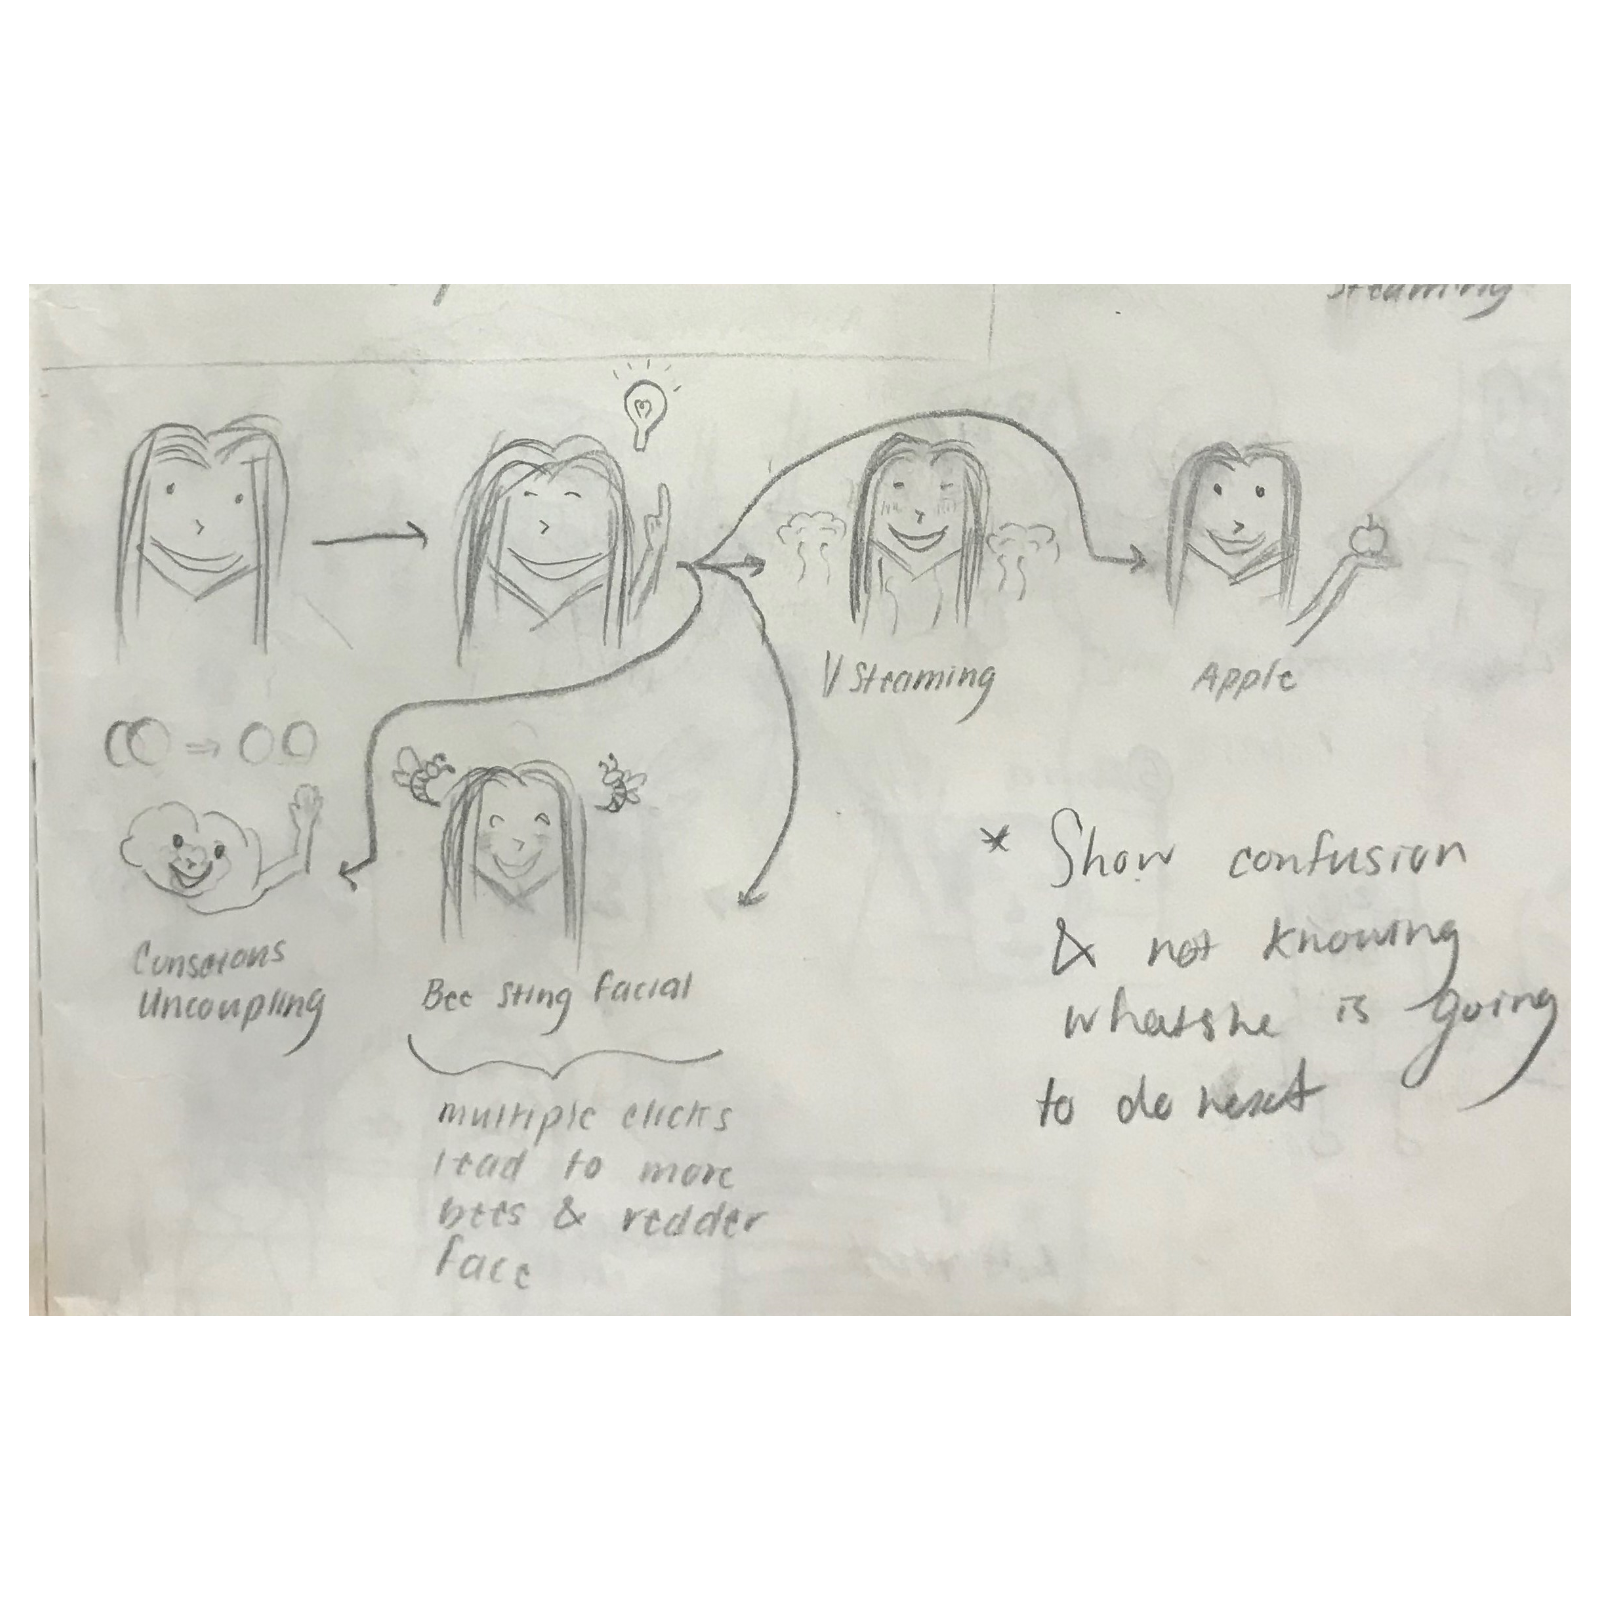 Steaming
V Steaming
Apple
Conscious
Uncoupling
Bee Sting Facial
multiple clicks
lead to more
bees & redder
face
* Show confusion
& not knowing
what she is going
to do next